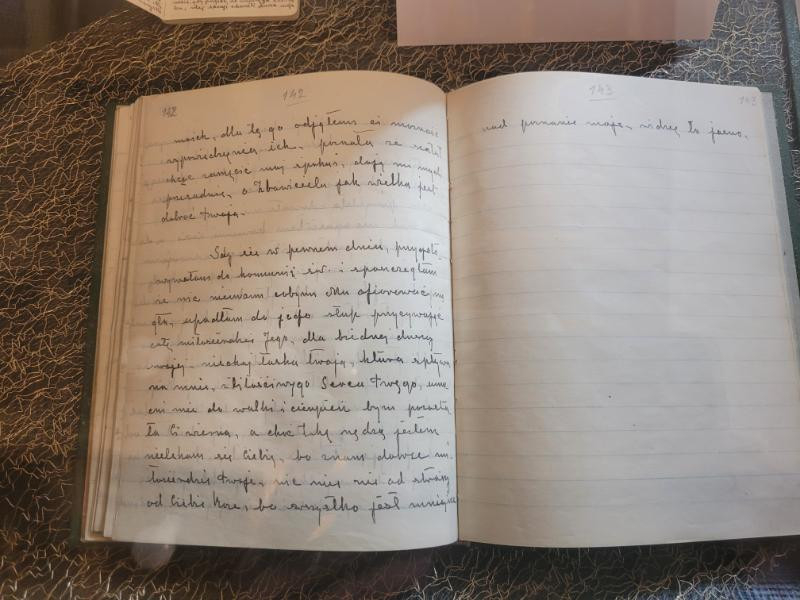 142
142
moich, dla tego odjęłem ci możność
wypowiedzenia ich, poznała że
chcąc zamęść mój spokój, dają mi myśl
przesadnie, o Zbawicielu jak wielka jest
dobroć twoja.
Gdy się w pewnem dniu, przygoto
wywałam do komunij św. i spostrzegłam
że nic niemam cobym Mu ofiarować mo
gła, upadłam do jego stup przyzywając
całą miłosierdzie Jego, dla biednej duszy
mojej niechaj łaska twoja, która spływa
na mnie, z litościwego Serca twego, umac
ni mie do walki i cierpień bym pozosta
ła Ci wierną, a choć taką nędzą jestem
nielękam się Ciebie, bo znam dobrze mi
łosierdzie twoje, nic mie nie od straszy
od Ciebie Boże, bo wszystko jest mniejsze
143
143
nad poznanie moje, widzę to jasno.